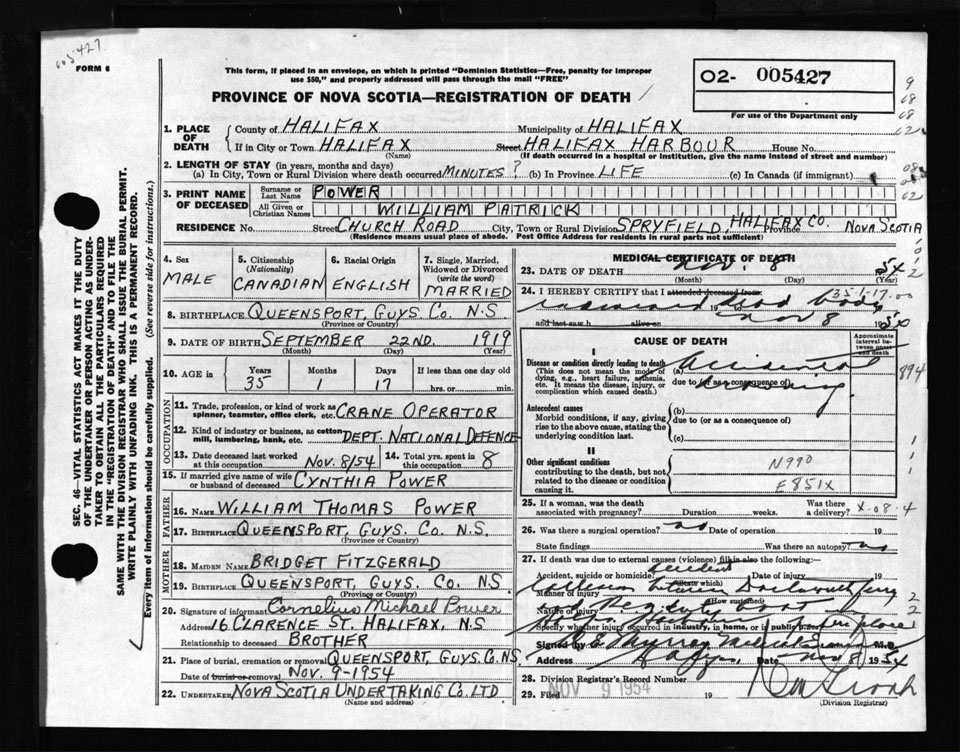 005427
FORM 6
This form, if placed in an envelope, on which is printed "Dominion Statistics—Free, penalty for improper
use $50," and properly addressed will pass through the mail "FREE"
PROVINCE OF NOVA SCOTIA—REGISTRATION OF DEATH
02- 005427
For use of the Department only
SEC. 46—VITAL STATISTICS ACT MAKES IT THE DUTY
OF THE UNDERTAKER OR PERSON ACTING AS UNDER-
TAKER TO OBTAIN ALL THE PARTICULARS REQUIRED
IN THE "REGISTRATION OF DEATH" AND TO FILE THE
SAME WITH THE DIVISION REGISTRAR WHO SHALL ISSUE THE BURIAL PERMIT.
WRITE PLAINLY WITH UNFADING INK. THIS IS A PERMANENT RECORD.
Every item of information should be carefully supplied. (See reverse side for instructions.)
1. PLACE OF DEATH
County of HALIFAX Municipality of HALIFAX
If in City or Town HALIFAX Street HALIFAX HARBOUR House No.
(Name) (If death occurred in a hospital or institution, give the name instead of street and number)
2. LENGTH OF STAY (in years, months and days)
(a) In City, Town or Rural Division where death occurred MINUTES? (b) In Province LIFE (c) In Canada (if immigrant)
3. PRINT NAME OF DECEASED
Surname or Last Name POWER
All Given or Christian Names WILLIAM PATRICK
RESIDENCE No. Street CHURCH ROAD City, Town or Rural Division SPRYFIELD, HALIFAX CO. Province NOVA SCOTIA
(Residence means usual place of abode. Post Office Address for residents in rural parts not sufficient)
4. Sex MALE
5. Citizenship (Nationality) CANADIAN
6. Racial Origin ENGLISH
7. Single, Married, Widowed or Divorced (write the word) MARRIED
8. BIRTHPLACE QUEENSPORT, GUYS. CO. N.S
(Province or Country)
9. DATE OF BIRTH SEPTEMBER 22ND. 1919
(Month) (Day) (Year)
10. AGE in Years Months Days If less than one day old
35 1 17 hrs. or min.
OCCUPATION
11. Trade, profession, or kind of work as spinner, teamster, office clerk, etc. CRANE OPERATOR
12. Kind of industry or business, as cotton mill, lumbering, bank, etc. DEPT. NATIONAL DEFENCE
13. Date deceased last worked at this occupation NOV. 8/54
14. Total yrs. spent in this occupation 8
15. If married give name of wife or husband of deceased CYNTHIA POWER
FATHER
16. Name WILLIAM THOMAS POWER
17. Birthplace QUEENSPORT, GUYS. CO. N.S.
(Province or Country)
MOTHER
18. MAIDEN NAME BRIDGET FITZGERALD
19. BIRTHPLACE QUEENSPORT, GUYS. CO. N.S
(Province or Country)
20. Signature of informant Cornelius Michael Power
Address 16 CLARENCE ST. HALIFAX, N.S
Relationship to deceased BROTHER
21. Place of burial, cremation or removal QUEENSPORT, GUYS. CO. N.S.
Date of burial or removal NOV. 9-1954
22. UNDERTAKER NOVA SCOTIA UNDERTAKING CO. LTD
(Name and address)
MEDICAL CERTIFICATE OF DEATH
23. DATE OF DEATH Nov. 8 54
(Month) (Day) (Year)
24. I HEREBY CERTIFY that I attended deceased from:
dead body
19 to Nov 8 1954
and last saw h alive on
CAUSE OF DEATH
Approximate interval between onset and death
I
Disease or condition directly leading to death
(This does not mean the mode of dying, e.g., heart failure, asthenia, etc. It means the disease, injury, or complication which caused death.)
(a) Accidental
due to (or as a consequence of)
drowning
Antecedent causes
Morbid conditions, if any, giving rise to the above cause, stating the underlying condition last.
(b)
due to (or as a consequence of)
(c)
II
Other significant conditions
contributing to the death, but not related to the disease or condition causing it.
N990
E851X
25. If a woman, was the death associated with pregnancy? Duration weeks. Was there a delivery?
26. Was there a surgical operation? no Date of operation 19
State findings Was there an autopsy? no
27. If death was due to external causes (violence) fill in also the following:
Accident, suicide or homicide? accident Date of injury 19
(State which)
Manner of injury collision between Dartmouth ferry
(How sustained)
Nature of injury
Specify whether injury occurred in industry, in home, or in public place
Signed by M.D.
Address Hfx. Date Nov 8 1954
28. Division Registrar's Record Number
29. Filed NOV 9 1954 19
(Division Registrar)